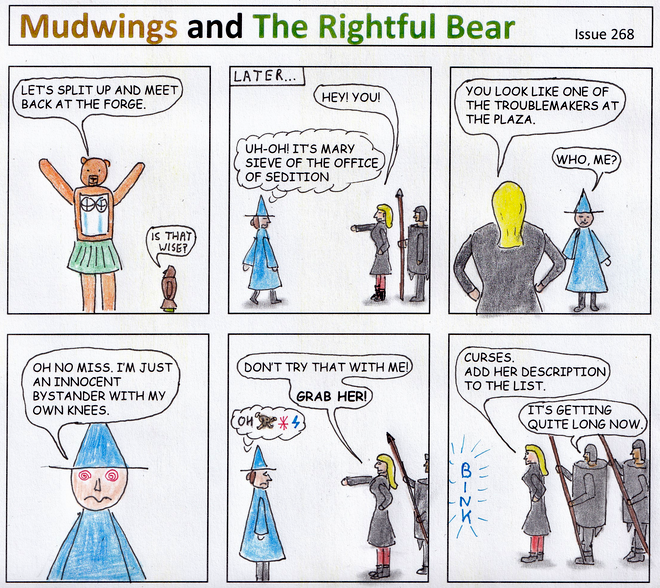 Mudwings and The Rightful Bear
Issue 268
LET'S SPLIT UP AND MEET
BACK AT THE FORGE.
IS THAT
WISE?
LATER...
HEY! YOU!
UH-OH! IT'S MARY
SIEVE OF THE OFFICE
OF SEDITION
YOU LOOK LIKE ONE OF
THE TROUBLEMAKERS AT
THE PLAZA.
WHO, ME?
OH NO MISS. I'M JUST
AN INNOCENT
BYSTANDER WITH MY
OWN KNEES.
DON'T TRY THAT WITH ME!
GRAB HER!
OH
CURSES.
ADD HER DESCRIPTION
TO THE LIST.
IT'S GETTING
QUITE LONG NOW.
BINK